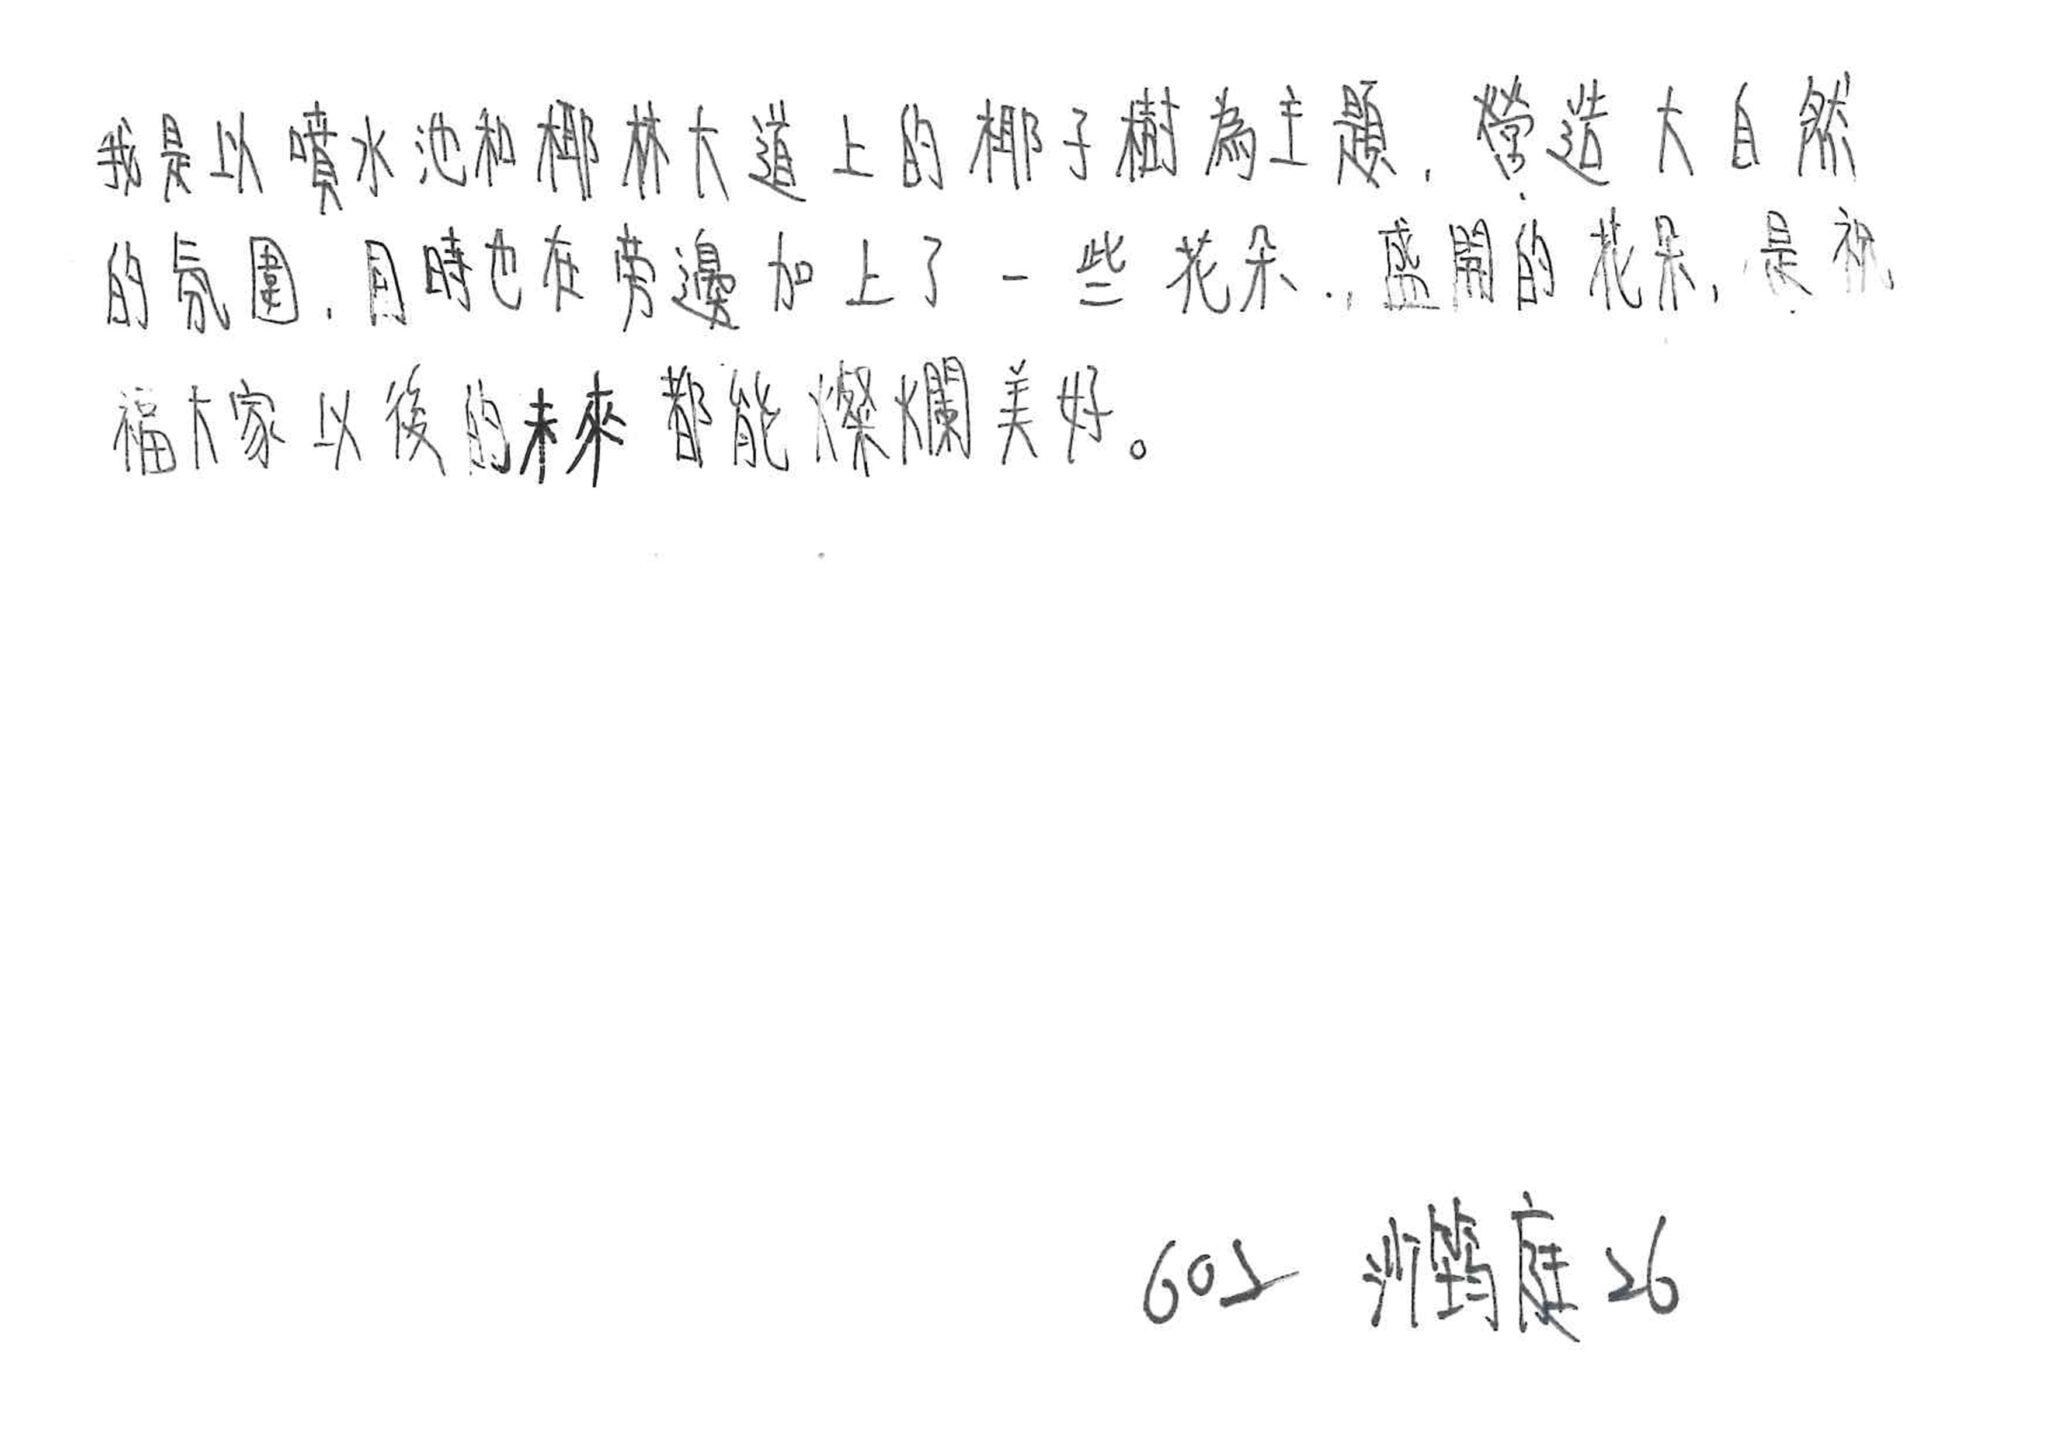 我是以噴水池和椰林大道上的椰子樹為主題，營造大自然
的氛圍，同時也在旁邊加上了一些花朵，盛開的花朵，是祝
福大家以後的未來都能燦爛美好。
602 沙筠庭 26